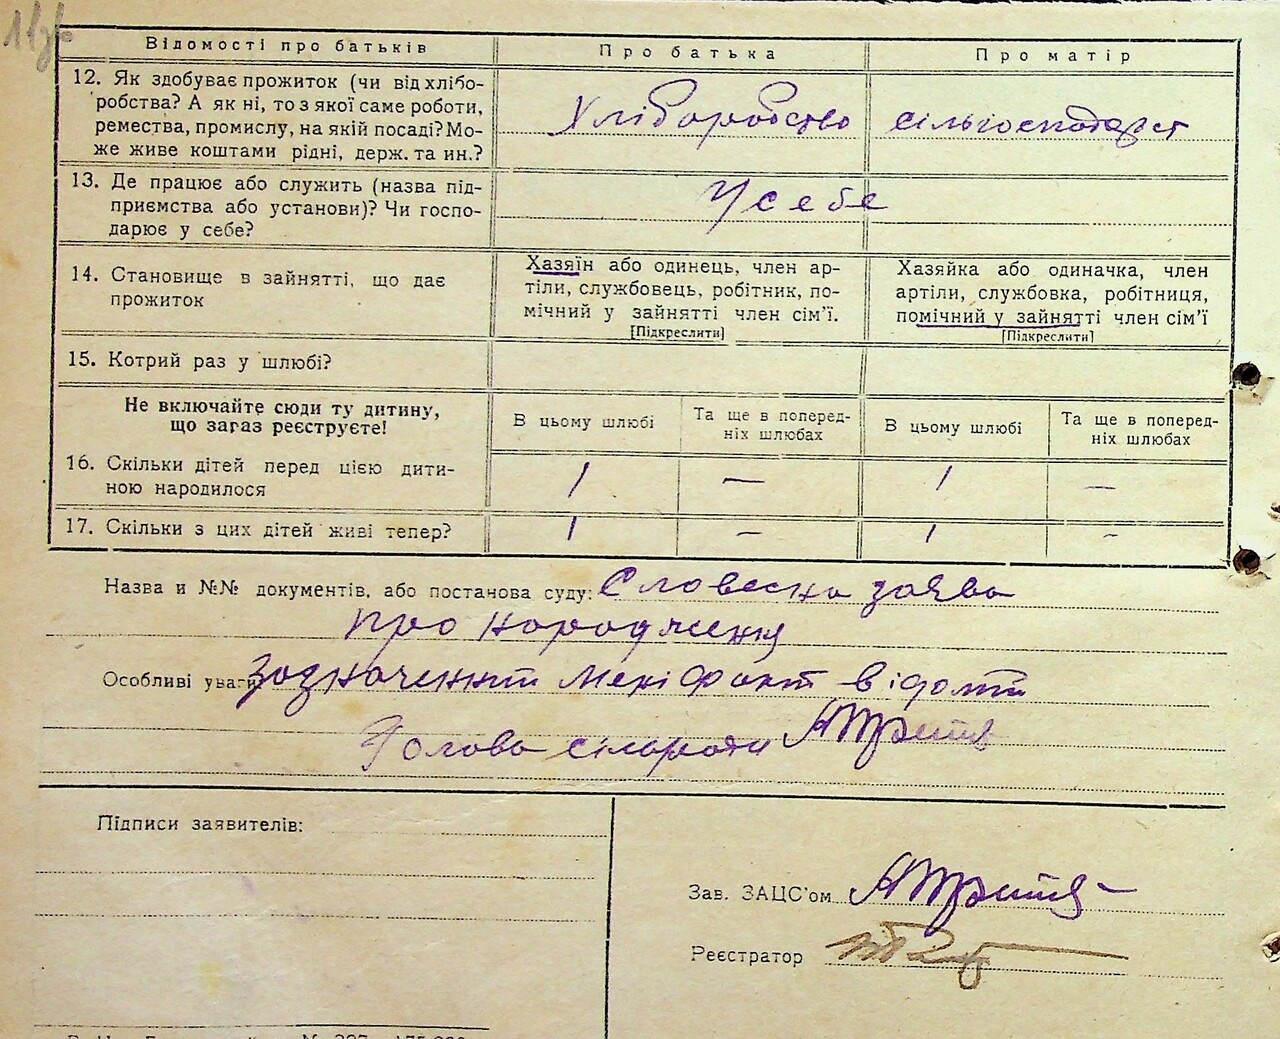 Відомості про батьків Про батька Про матір
12. Як здобуває прожиток (чи від хлібо-
робства? А як ні, то з якої саме роботи,
ремества, промислу, на якій посаді? Мо-
же живе коштами рідні, держ. та ин.?
Хліборобство сільгосподарст
13. Де працює або служить (назва під-
приємства або установи)? Чи госпо-
дарює у себе?
У себе
14. Становище в зайнятті, що дає
прожиток
Хазяїн або одинець, член ар-
тіли, службовець, робітник, по-
мічний у зайнятті член сім'ї.
[Підкреслити]
Хазяйка або одиначка, член
артіли, службовка, робітниця,
помічний у зайнятті член сім'ї
[Підкреслити]
15. Котрий раз у шлюбі?
Не включайте сюди ту дитину,
що загаз реєструєте!
В цьому шлюбі
Та ще в поперед-
ніх шлюбах
В цьому шлюбі
Та ще в поперед-
ніх шлюбах
16. Скільки дітей перед цією дити-
ною народилося
1 — 1 —
17. Скільки з цих дітей живі тепер?
1 — 1 —
Назва и №№ документів, або постанова суду: Словесна заява
про народження
Особливі уваги Зазначений мені факт відомий
Голова сільради
Підписи заявителів:
Зав. ЗАЦС'ом
Реєстратор